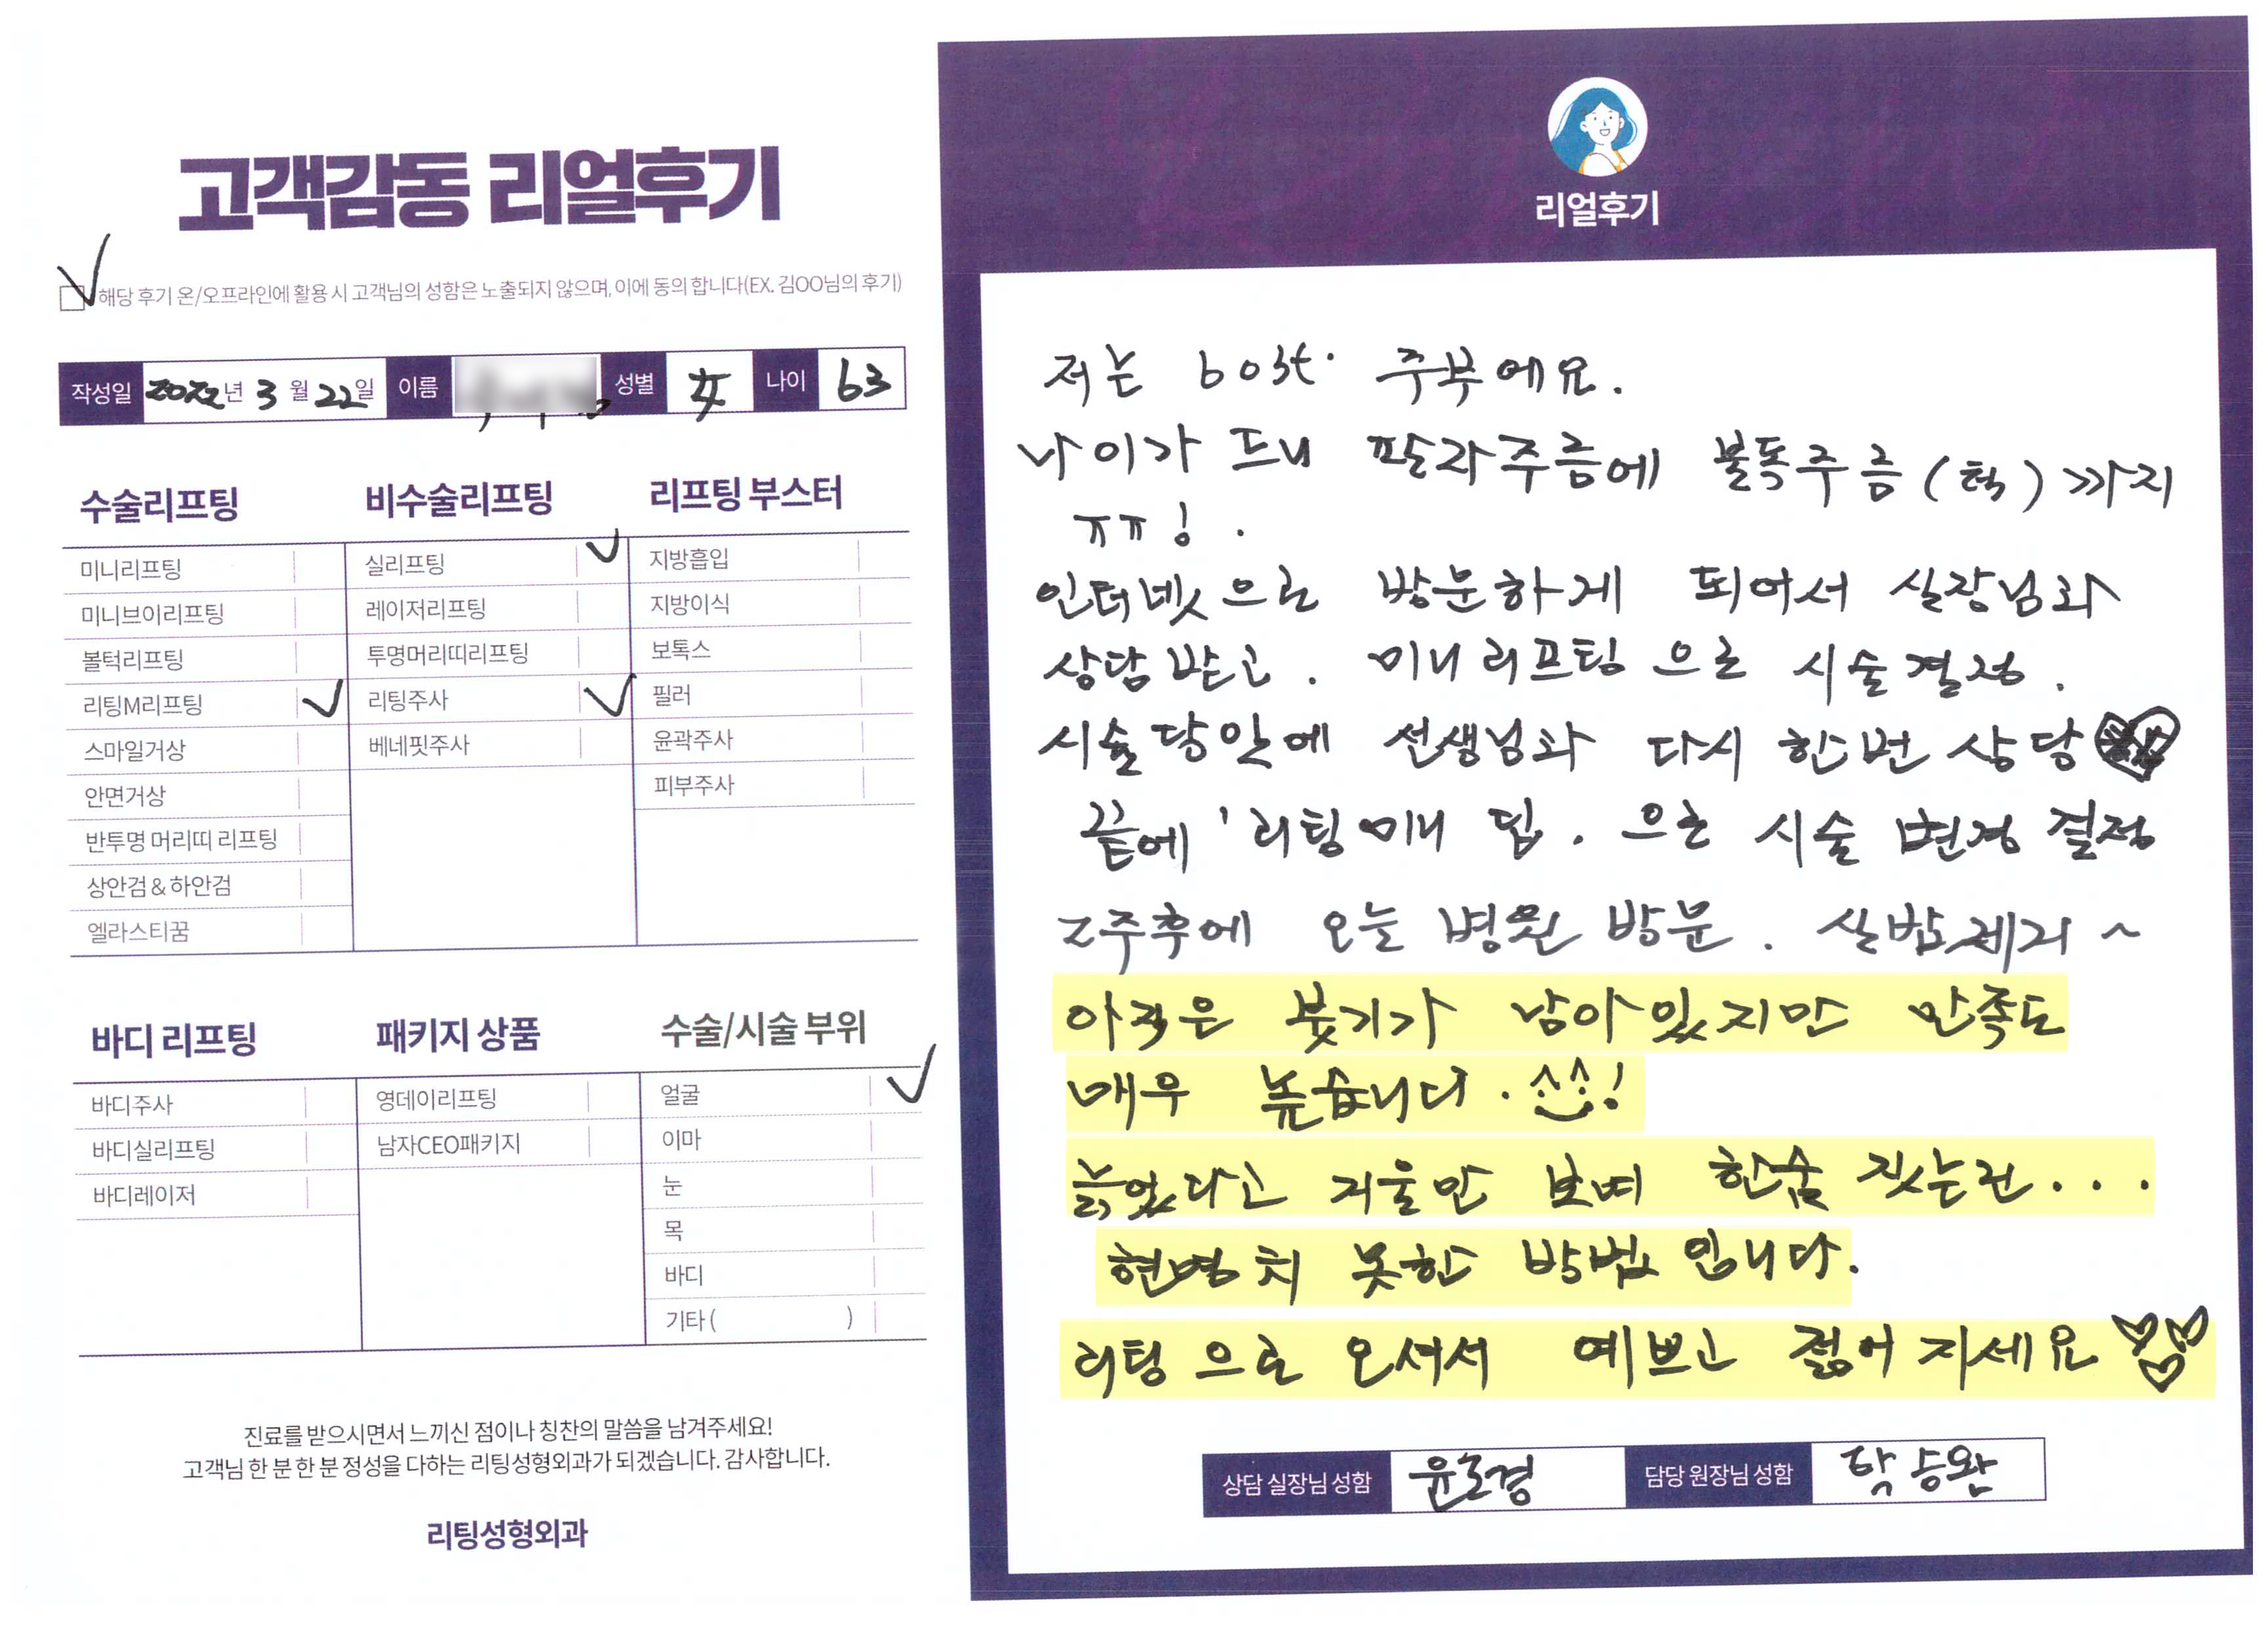 고객감동 리얼후기
해당 후기 온/오프라인에 활용 시 고객님의 성함은 노출되지 않으며, 이에 동의 합니다(EX. 김OO님의 후기)
작성일 2022년 3월 22일 이름 성별 女 나이 63
수술리프팅
미니리프팅
미니브이리프팅
볼턱리프팅
리팅M리프팅
스마일거상
안면거상
반투명 머리띠 리프팅
상안검 & 하안검
엘라스티꿈
비수술리프팅
실리프팅
레이저리프팅
투명머리띠리프팅
리팅주사
베네핏주사
리프팅 부스터
지방흡입
지방이식
보톡스
필러
윤곽주사
피부주사
바디 리프팅
바디주사
바디실리프팅
바디레이저
패키지 상품
영데이리프팅
남자CEO패키지
수술/시술 부위
얼굴
이마
눈
목
바디
기타 ( )
진료를 받으시면서 느끼신 점이나 칭찬의 말씀을 남겨주세요!
고객님 한 분 한 분 정성을 다하는 리팅성형외과가 되겠습니다. 감사합니다.
리팅성형외과
리얼후기
저는 주부에요.
나이가 드니 팔자주름에 불독주름(턱)까지
ㅠㅠ! .
인터넷으로 방문하게 되어서 실장님과
상담받고. 미니리프팅으로 시술결정.
시술당일에 선생님과 다시 한번 상담
끝에 '리팅미니 딥. 으로 시술 변경 결정
2주후에 오늘 병원 방문. 실밥제거 ~
아직은 붓기가 남아있지만 만족도
매우 높습니다. ^^!
늙었다고 거울만 보며 한숨 짓는건...
현명치 못한 방법입니다.
리팅으로 오셔서 예쁘고 젊어지세요 ♡♡♡
상담 실장님 성함 담당 원장님 성함 탁승완